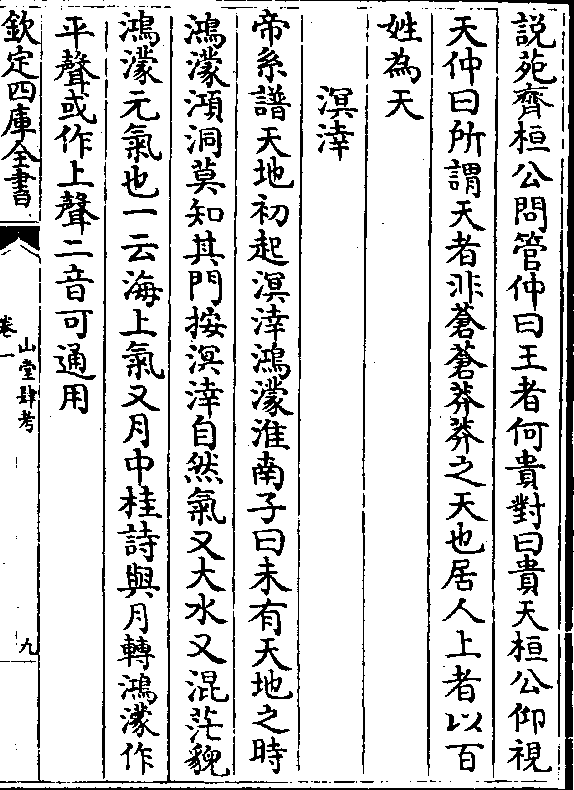 說苑齊桓公問管仲曰王者何貴對曰貴天桓公仰視
天仲曰所謂天者非蒼蒼莽莽之天也居人上者以百
姓為天
溟涬
帝系譜天地初起溟涬鴻濛淮南子曰未有天地之時
鴻濛澒洞莫知其門按溟涬自然氣又大水又混茫貌
鴻濛元氣也一云海上氣又月中桂詩與月轉鴻濛作
平聲或作上聲二音可通用
欽定四庫全書
卷一
山堂肆考
九